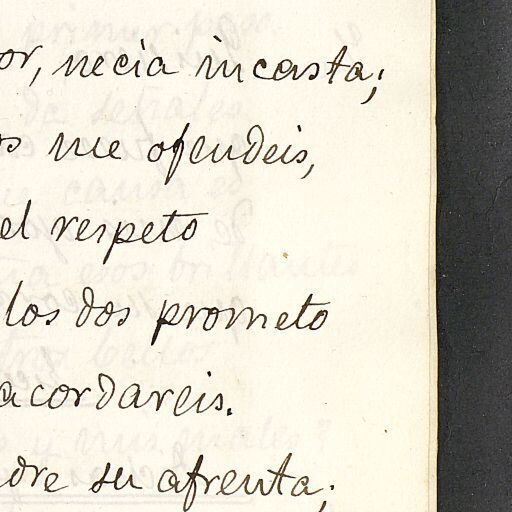 or, necia incasta;
os me ofendeis,
el respeto
los dos prometo
acordareis.
adre su afrenta;